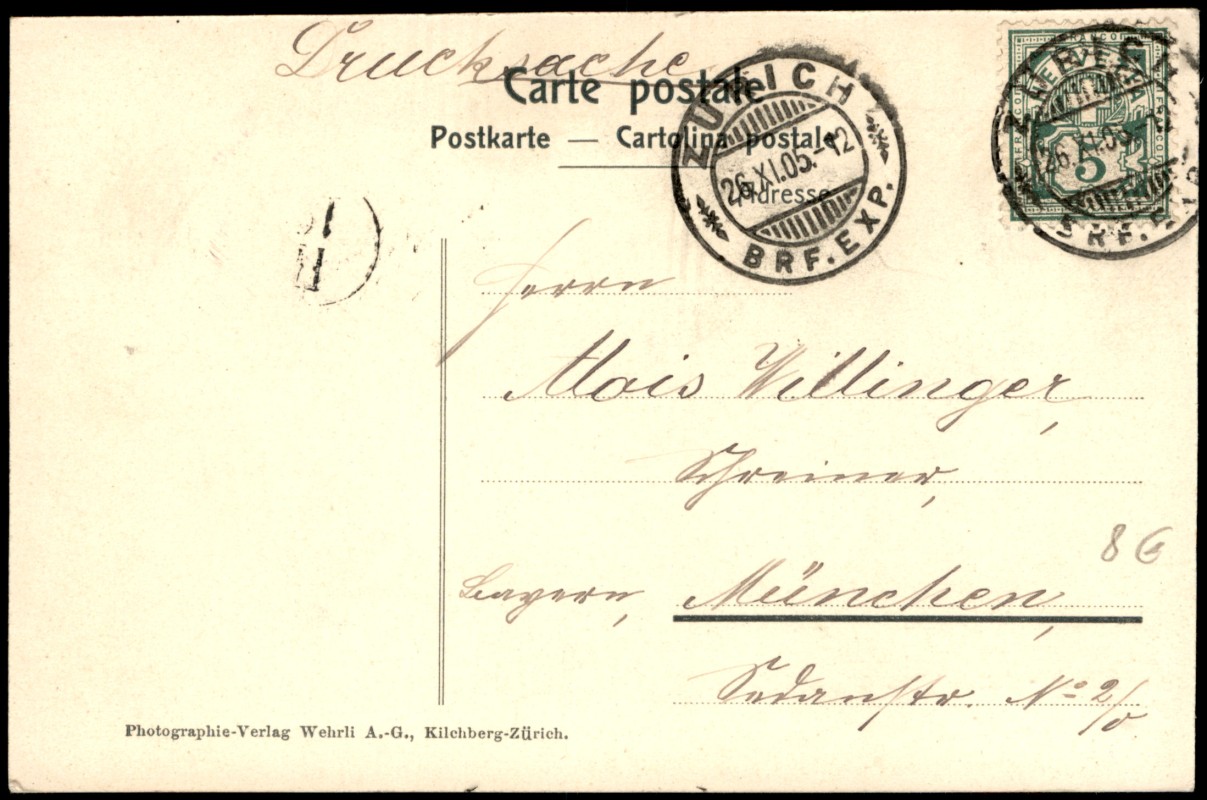 Drucksache
Carte postale
Postkarte — Cartolina postale
Adresse
ZÜRICH
26.XI.05.-12
BRF. EXP.
HELVETIA
FRANCO
5
26.XI.05.
BRF. EXP.
Herrn
Alois Willinger,
Schreiner,
Bayern, München,
Sedanstr. No 2/0
8 €
Photographie-Verlag Wehrli A.-G., Kilchberg-Zürich.